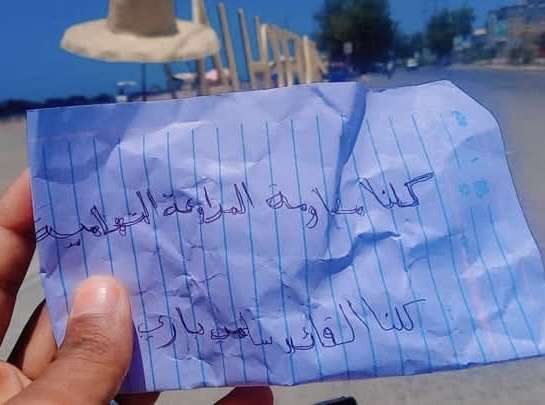 كلنا مقاومة المراوعة التهامية
كلنا القائد سامي باري